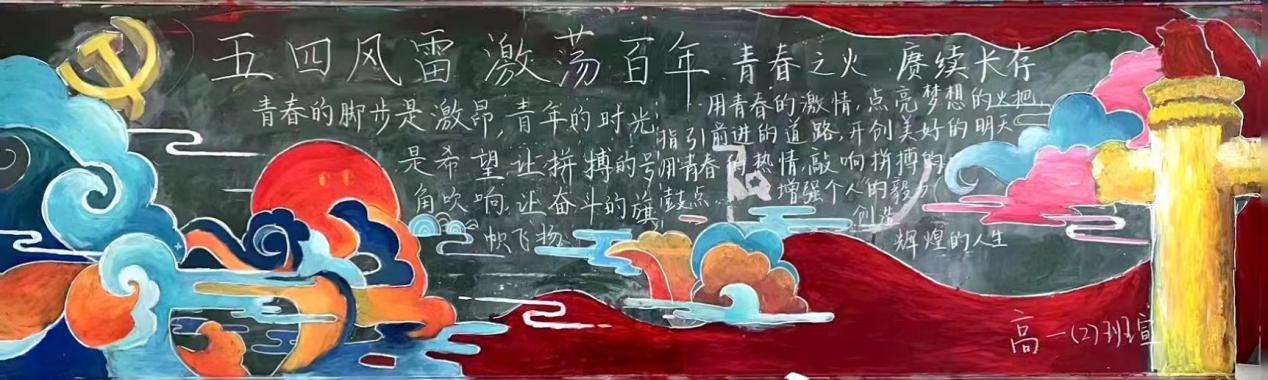 五四风雷激荡百年
青春的脚步是激昂,青年的时光
是希望.让拼搏的号
角吹响.让奋斗的旗
帜飞扬
青春之火 赓续长存
用青春的激情,点亮梦想的火把,
指引前进的道路,开创美好的明天
用青春的热情敲响拼搏的
鼓点..增强个人的毅力
创造
辉煌的人生
高一(2)班宣